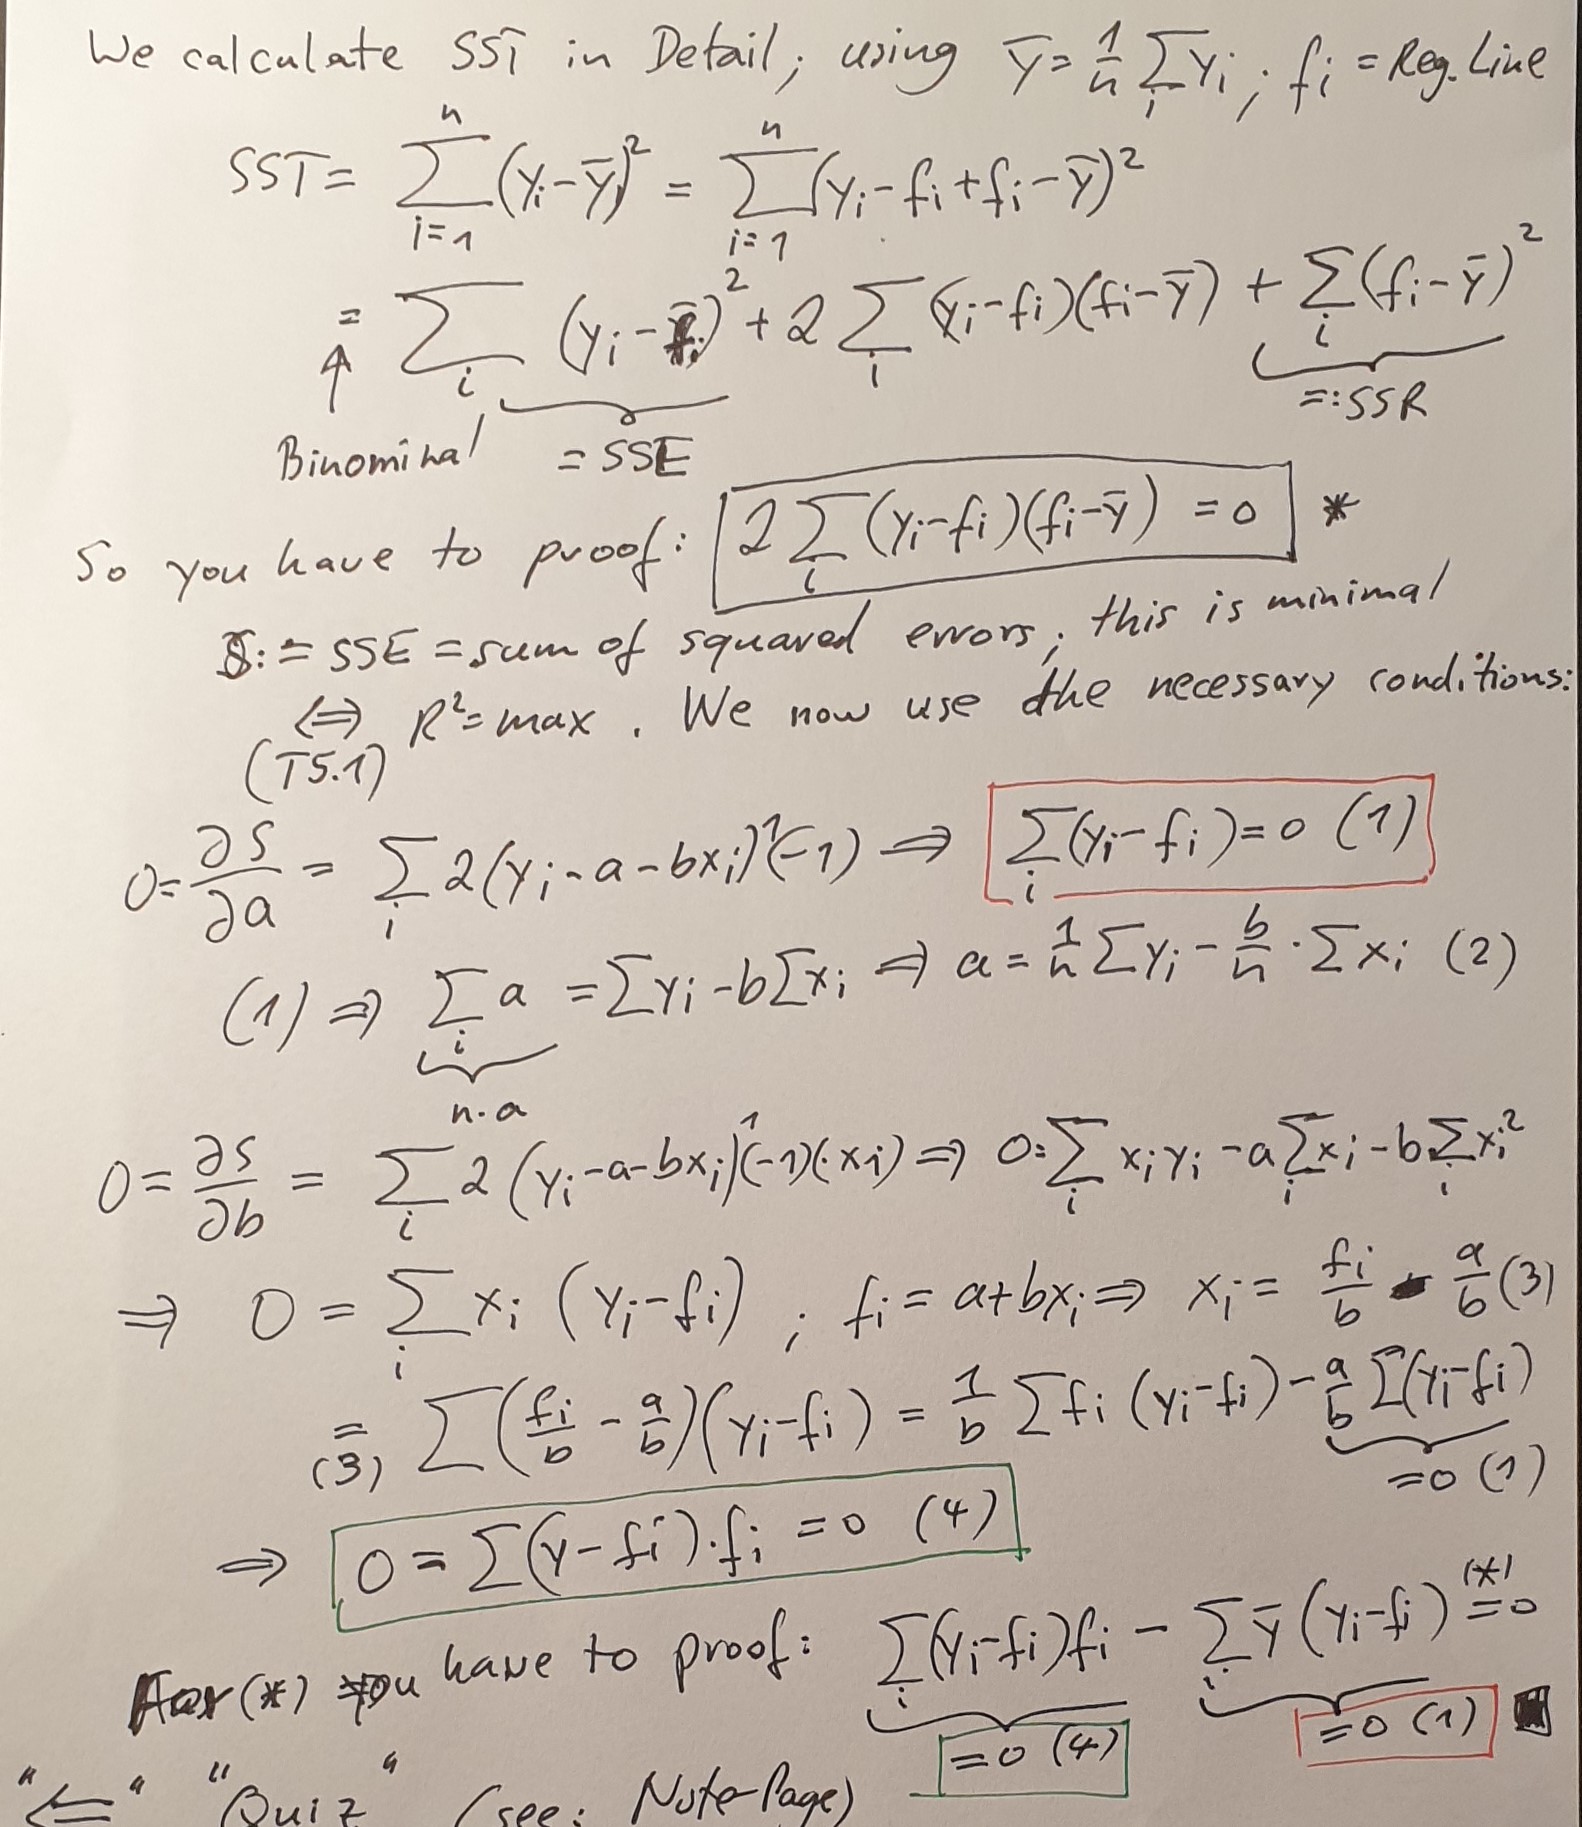 We calculate SST in Detail; using ȳ = 1/n Σ_i y_i ; f_i = Reg. Line
SST = Σ_{i=1}^n (y_i - ȳ)^2 = Σ_{i=1}^n (y_i - f_i + f_i - ȳ)^2
= Σ_i (y_i - f_i)^2 + 2 Σ_i (y_i - f_i)(f_i - ȳ) + Σ_i (f_i - ȳ)^2
Binominal = SSE =: SSR
So you have to proof: 2 Σ_i (y_i - f_i)(f_i - ȳ) = 0 *
S := SSE = sum of squared errors; this is minimal
⟺ (T5.1) R² = max . We now use the necessary conditions:
0 = ∂S/∂a = Σ_i 2(y_i - a - bx_i)^1 (-1) ⟹ Σ_i (y_i - f_i) = 0 (1)
(1) ⟹ Σ_i a = Σ y_i - b Σ x_i ⟹ a = 1/n Σ y_i - b/n · Σ x_i (2)
n·a
0 = ∂S/∂b = Σ_i 2(y_i - a - bx_i)^1 (-1)(·x_i) ⟹ 0 = Σ_i x_i y_i - a Σ_i x_i - b Σ_i x_i^2
⟹ 0 = Σ_i x_i (y_i - f_i) ; f_i = a + bx_i ⟹ x_i = f_i/b - a/b (3)
=(3) Σ (f_i/b - a/b)(y_i - f_i) = 1/b Σ f_i (y_i - f_i) - a/b Σ (y_i - f_i)
= 0 (1)
⟹ 0 = Σ (y - f_i)·f_i = 0 (4)
For (*) you have to proof: Σ_i (y_i - f_i) f_i - Σ_i ȳ (y_i - f_i) =(*) 0
= 0 (4) = 0 (1) ■
"⟸" "Quiz" (see: Note-Page)